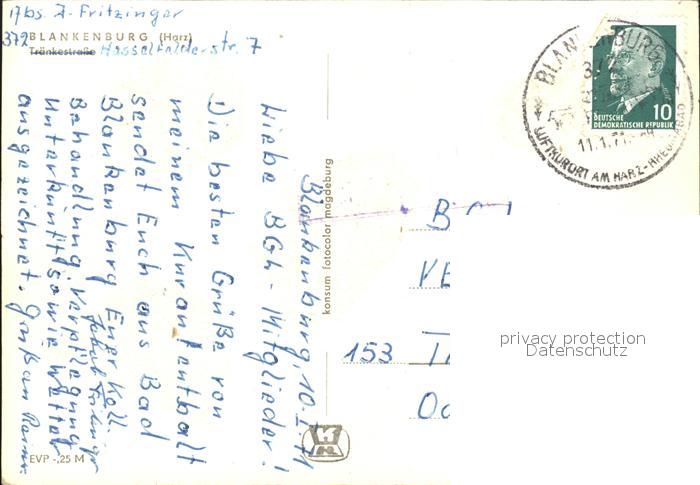 Abs. J. Fritzinger
372 BLANKENBURG (Harz)
Tränkestraße Hasselfelderstr. 7
Blankenburg, 10.1.71
Liebe BGL-Mitglieder!
Die besten Grüße von
meinem Kuraufenthalt
sendet Euch aus Bad
Blankenburg Euer Koll.
Behandlung, Verpflegung
Unterkunft sowie Wetter
ausgezeichnet. Gruß an
EVP -,25 M
konsum fotocolor magdeburg
BLANKENBURG
11.1.71
LUFTKURORT AM HARZ
10
DEUTSCHE
DEMOKRATISCHE REPUBLIK
VE
153
privacy protection
Datenschutz